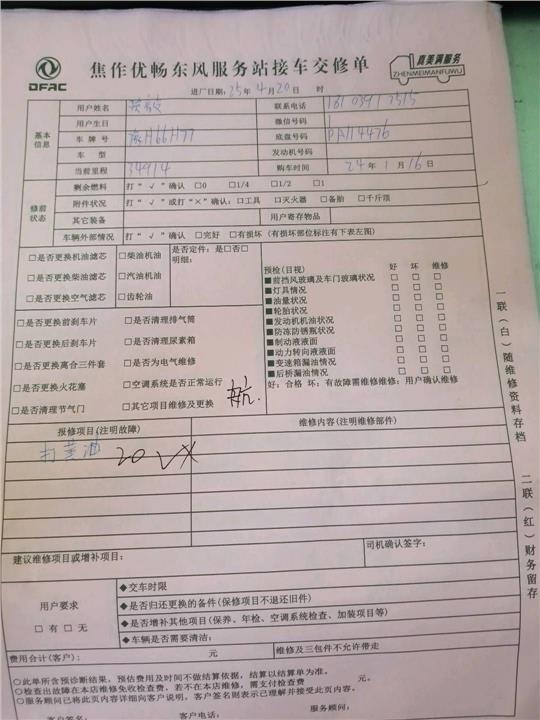 DFAC
焦作优畅东风服务站接车交修单
真美满服务
ZHENMEIMANFUWU
进厂日期:25年4月20日 时
基本信息
用户姓名 联系电话
用户生日 微信号码
车牌号 豫H66H77 底盘号码 PA114476
车型 发动机号码
当前里程 34914 购车时间 24年1月16日
修前状态
剩余燃料 打“√”确认 □0 □1/4 □1/2 □1
附件状况 打“√”或打“×”确认:□工具 □灭火器 □备胎 □千斤顶
其它装备 用户寄存物品
车辆外部情况 打“√”确认 □完好 □有损坏(有损坏部位标注有下表左图)
□是否更换机油滤芯 □柴油机油 是否定件:是□否□
明细:
□是否更换柴油滤芯 □汽油机油
□是否更换空气滤芯 □齿轮油
预检(目视) 好 坏 维修
■前挡风玻璃及车门玻璃状况 □ □ □
■灯具情况 □ □ □
■油量状况 □ □ □
■轮胎状况 □ □ □
■发动机机油状况 □ □ □
■防冻防锈瓶状况 □ □ □
■制动液液面 □ □ □
■动力转向液液面 □ □ □
■变速箱漏油情况 □ □ □
■后桥漏油情况 □ □ □
好:合格 坏:有故障需维修维修:用户确认维修
□是否更换前刹车片 □是否清理排气筒
□是否更换后刹车片 □是否清理尿素箱
□是否更换离合三件套 □是否为电气维修
□是否更换火花塞 □空调系统是否正常运行
□是否清理节气门 □其它项目维修及更换
报修项目(注明故障) 维修内容(注明维修部件)
打黄油 20
建议维修项目或增补项目: 司机确认签字:
用户要求
□有 □无
◆交车时限
◆是否归还更换的备件(保修项目不退还旧件)
◆是否增补其他项目(保养、年检、空调系统检查、加装项目等)
◆车辆是否需要清洁:
费用合计(客户): 元 维修及三包件不允许带走
○此单所含预诊断结果,预估费用及时间不做结算依据,结算以结算单为准。
○检查出故障在本店维修免收检查费,若不在本店维修,需支付检查费 元。
○服务顾问已将此页内容详细向客户说明,客户签名则表示已理解并接受此页内容。
客户签名: 客户电话: 服务顾问:
一联(白)随维修资料存档
二联(红)财务留存